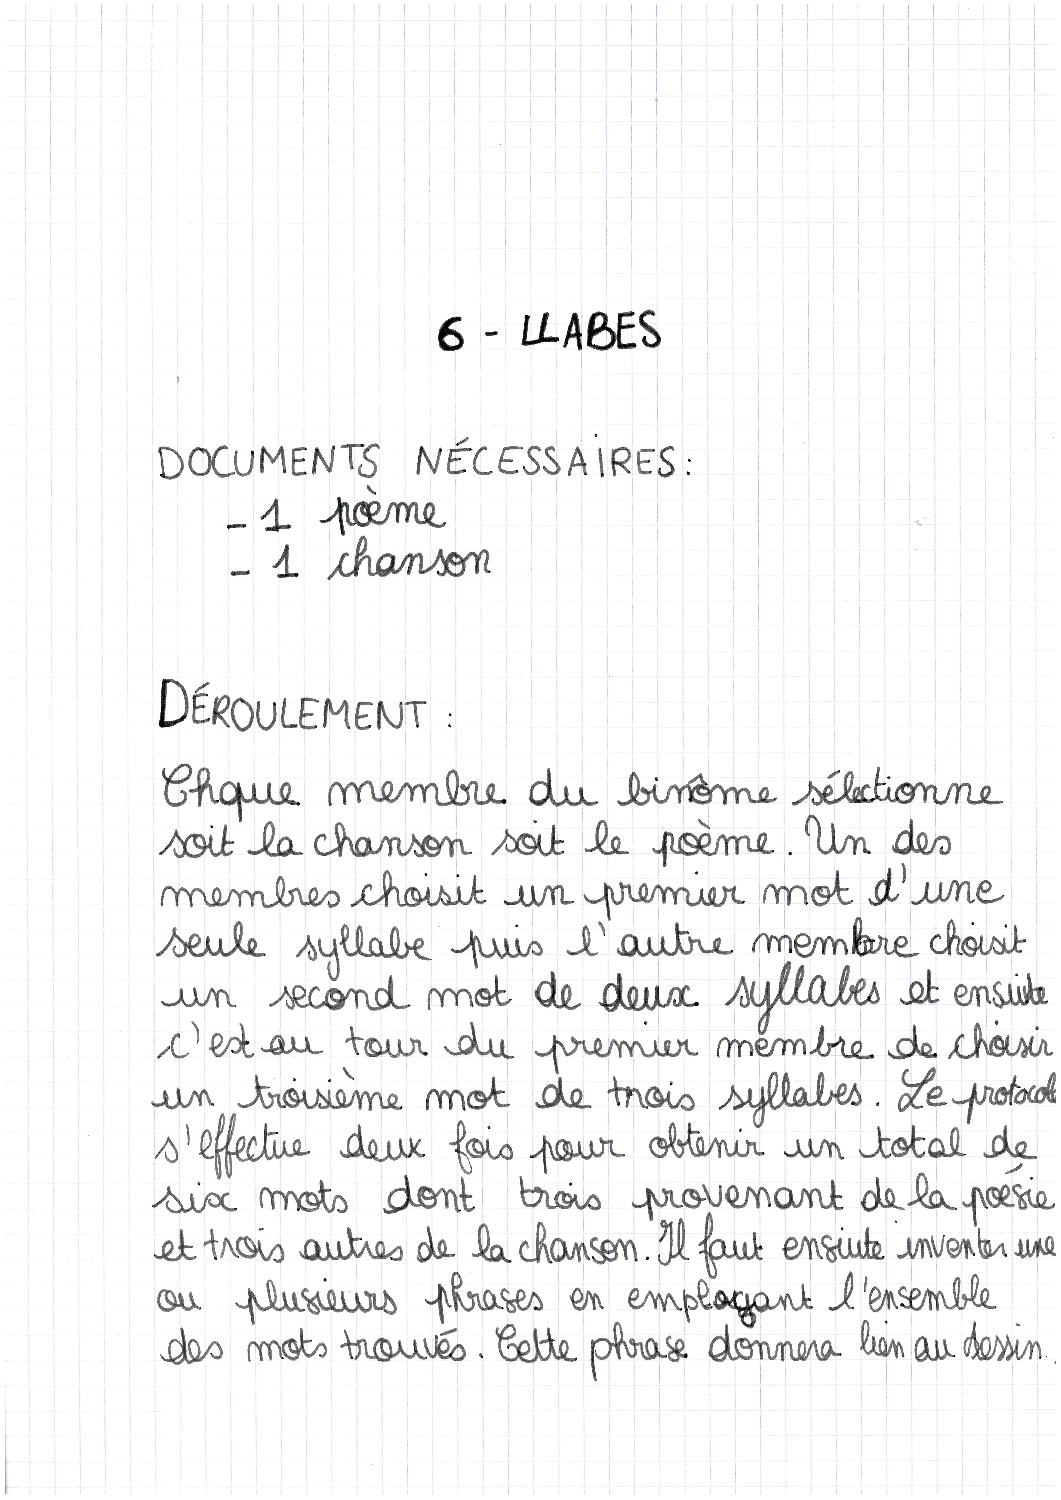 6 - LLABES
DOCUMENTS NÉCESSAIRES :
- 1 poème
- 1 chanson
DÉROULEMENT :
Chque membre du binôme sélectionne
soit la chanson soit le poème. Un des
membres choisit un premier mot d'une
seule syllabe puis l'autre membre choisit
un second mot de deux syllabes et ensuite
c'est au tour du premier membre de choisir
un troisième mot de trois syllabes. Le protocole
s'effectue deux fois pour obtenir un total de
six mots dont trois provenant de la poésie
et trois autres de la chanson. Il faut ensuite inventer une
ou plusieurs phrases en employant l'ensemble
des mots trouvés. Cette phrase donnera lien au dessin.